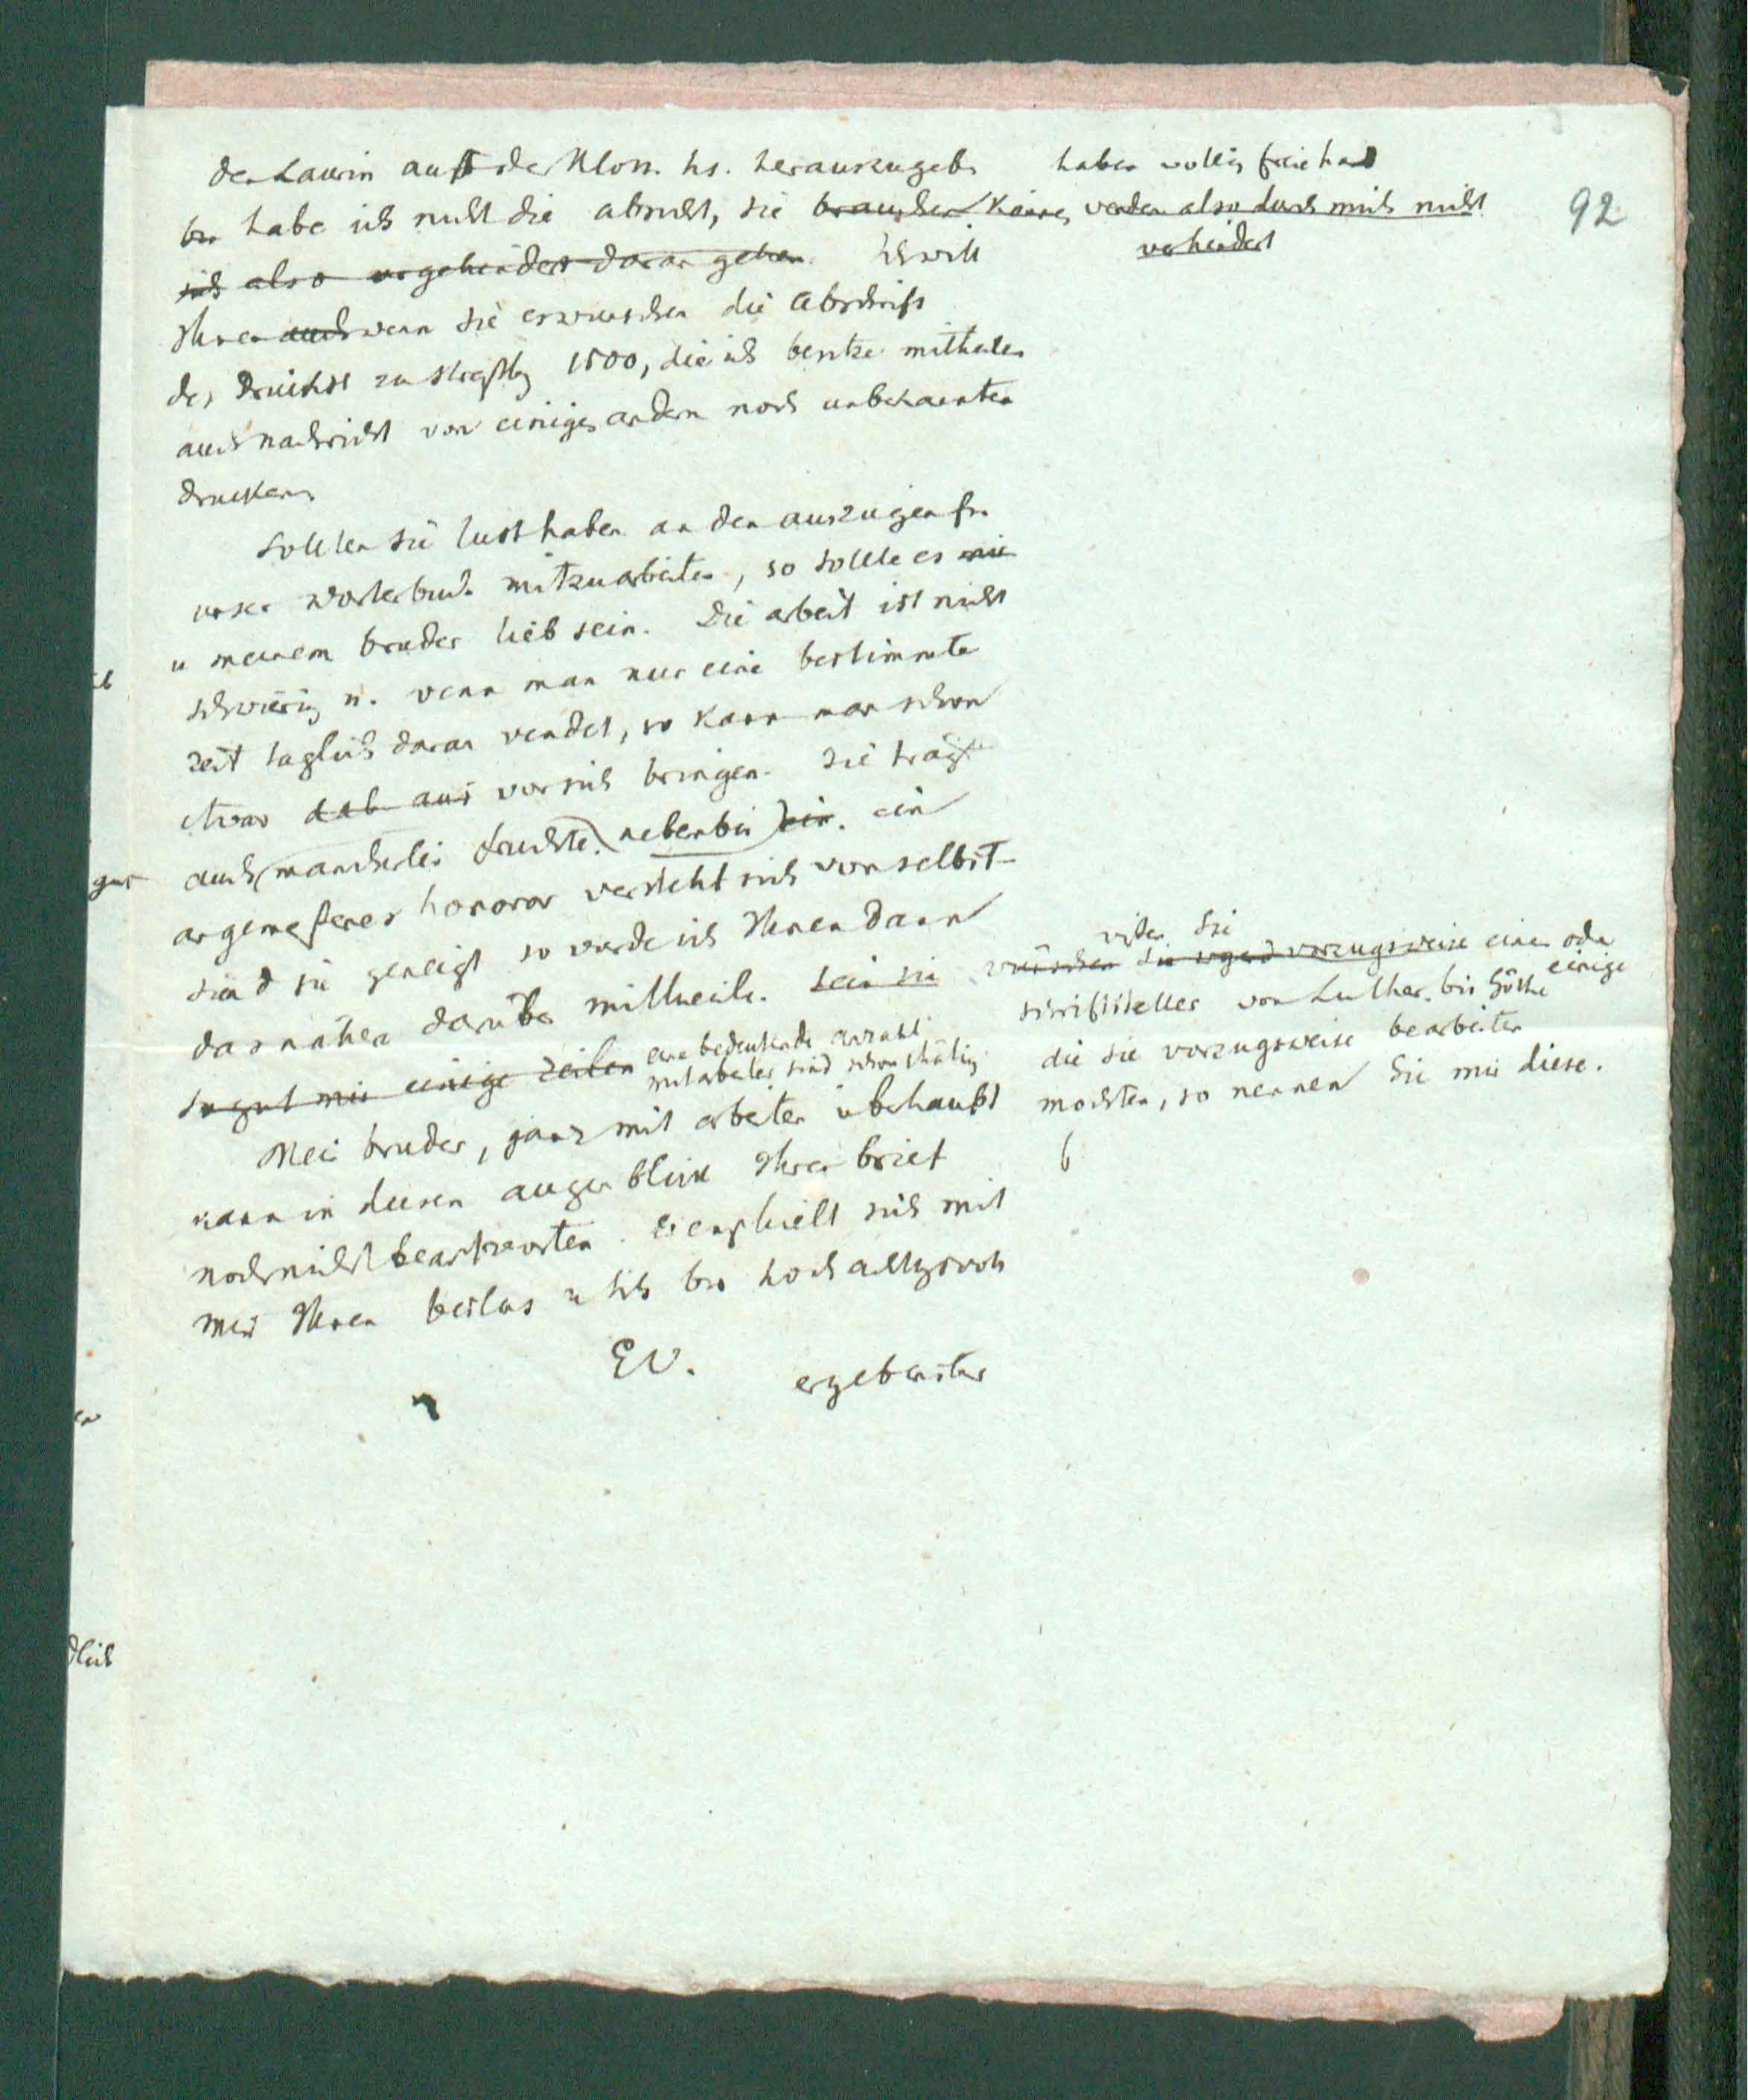 den Laurin aus der Klon. hs. herauszugeb. haben völlig freie hand
92
bn habe ich nicht die absicht, sie brauchen können werden also durch mich nicht
verhindert
sich also ungehindert daran gehen. Ich will
Ihnen auch wenn Sie es wünschen die abschrift
des druckes zu Straßbg 1500, die ich besitze mittheilen
auch nachricht von einigen andern noch unbekannten
drucken.
Sollten Sie lust haben an den auszügen für
unser Wörterbuch mitzuarbeiten, so sollte es mir
u meinem bruder lieb sein. Die arbeit ist nicht
schwierig u. wenn man nur eine bestimmte
zeit täglich daran wendet, so kann man schon
etwas vor sich bringen. Sie trägt
auch mancherlei früchte. nebenbei ein. ein
angemeßenes honorar versteht sich von selbst
sind sie geneigt so werde ich Ihnen dann
das nähere darüber mittheilen. Sein sie
wißen Sie
wünschen Sie irgend vorzugsweise einen oder
einige
schriftsteller von Luther bis Göthe
die sie vorzugsweise bearbeiten
möchten, so nennen Sie mir diese.
so gut mir einige zeilen eine bedeutende anzahl
mitarbeiter sind schon thätig
Mein bruder, ganz mit arbeiten überhäuft
kann in diesem augenblick Ihren brief
noch nicht beantworten. Er empfielt sich mit
mir Ihnen bestens u ich bin hochachtungsvoll
Ew. ergebenster